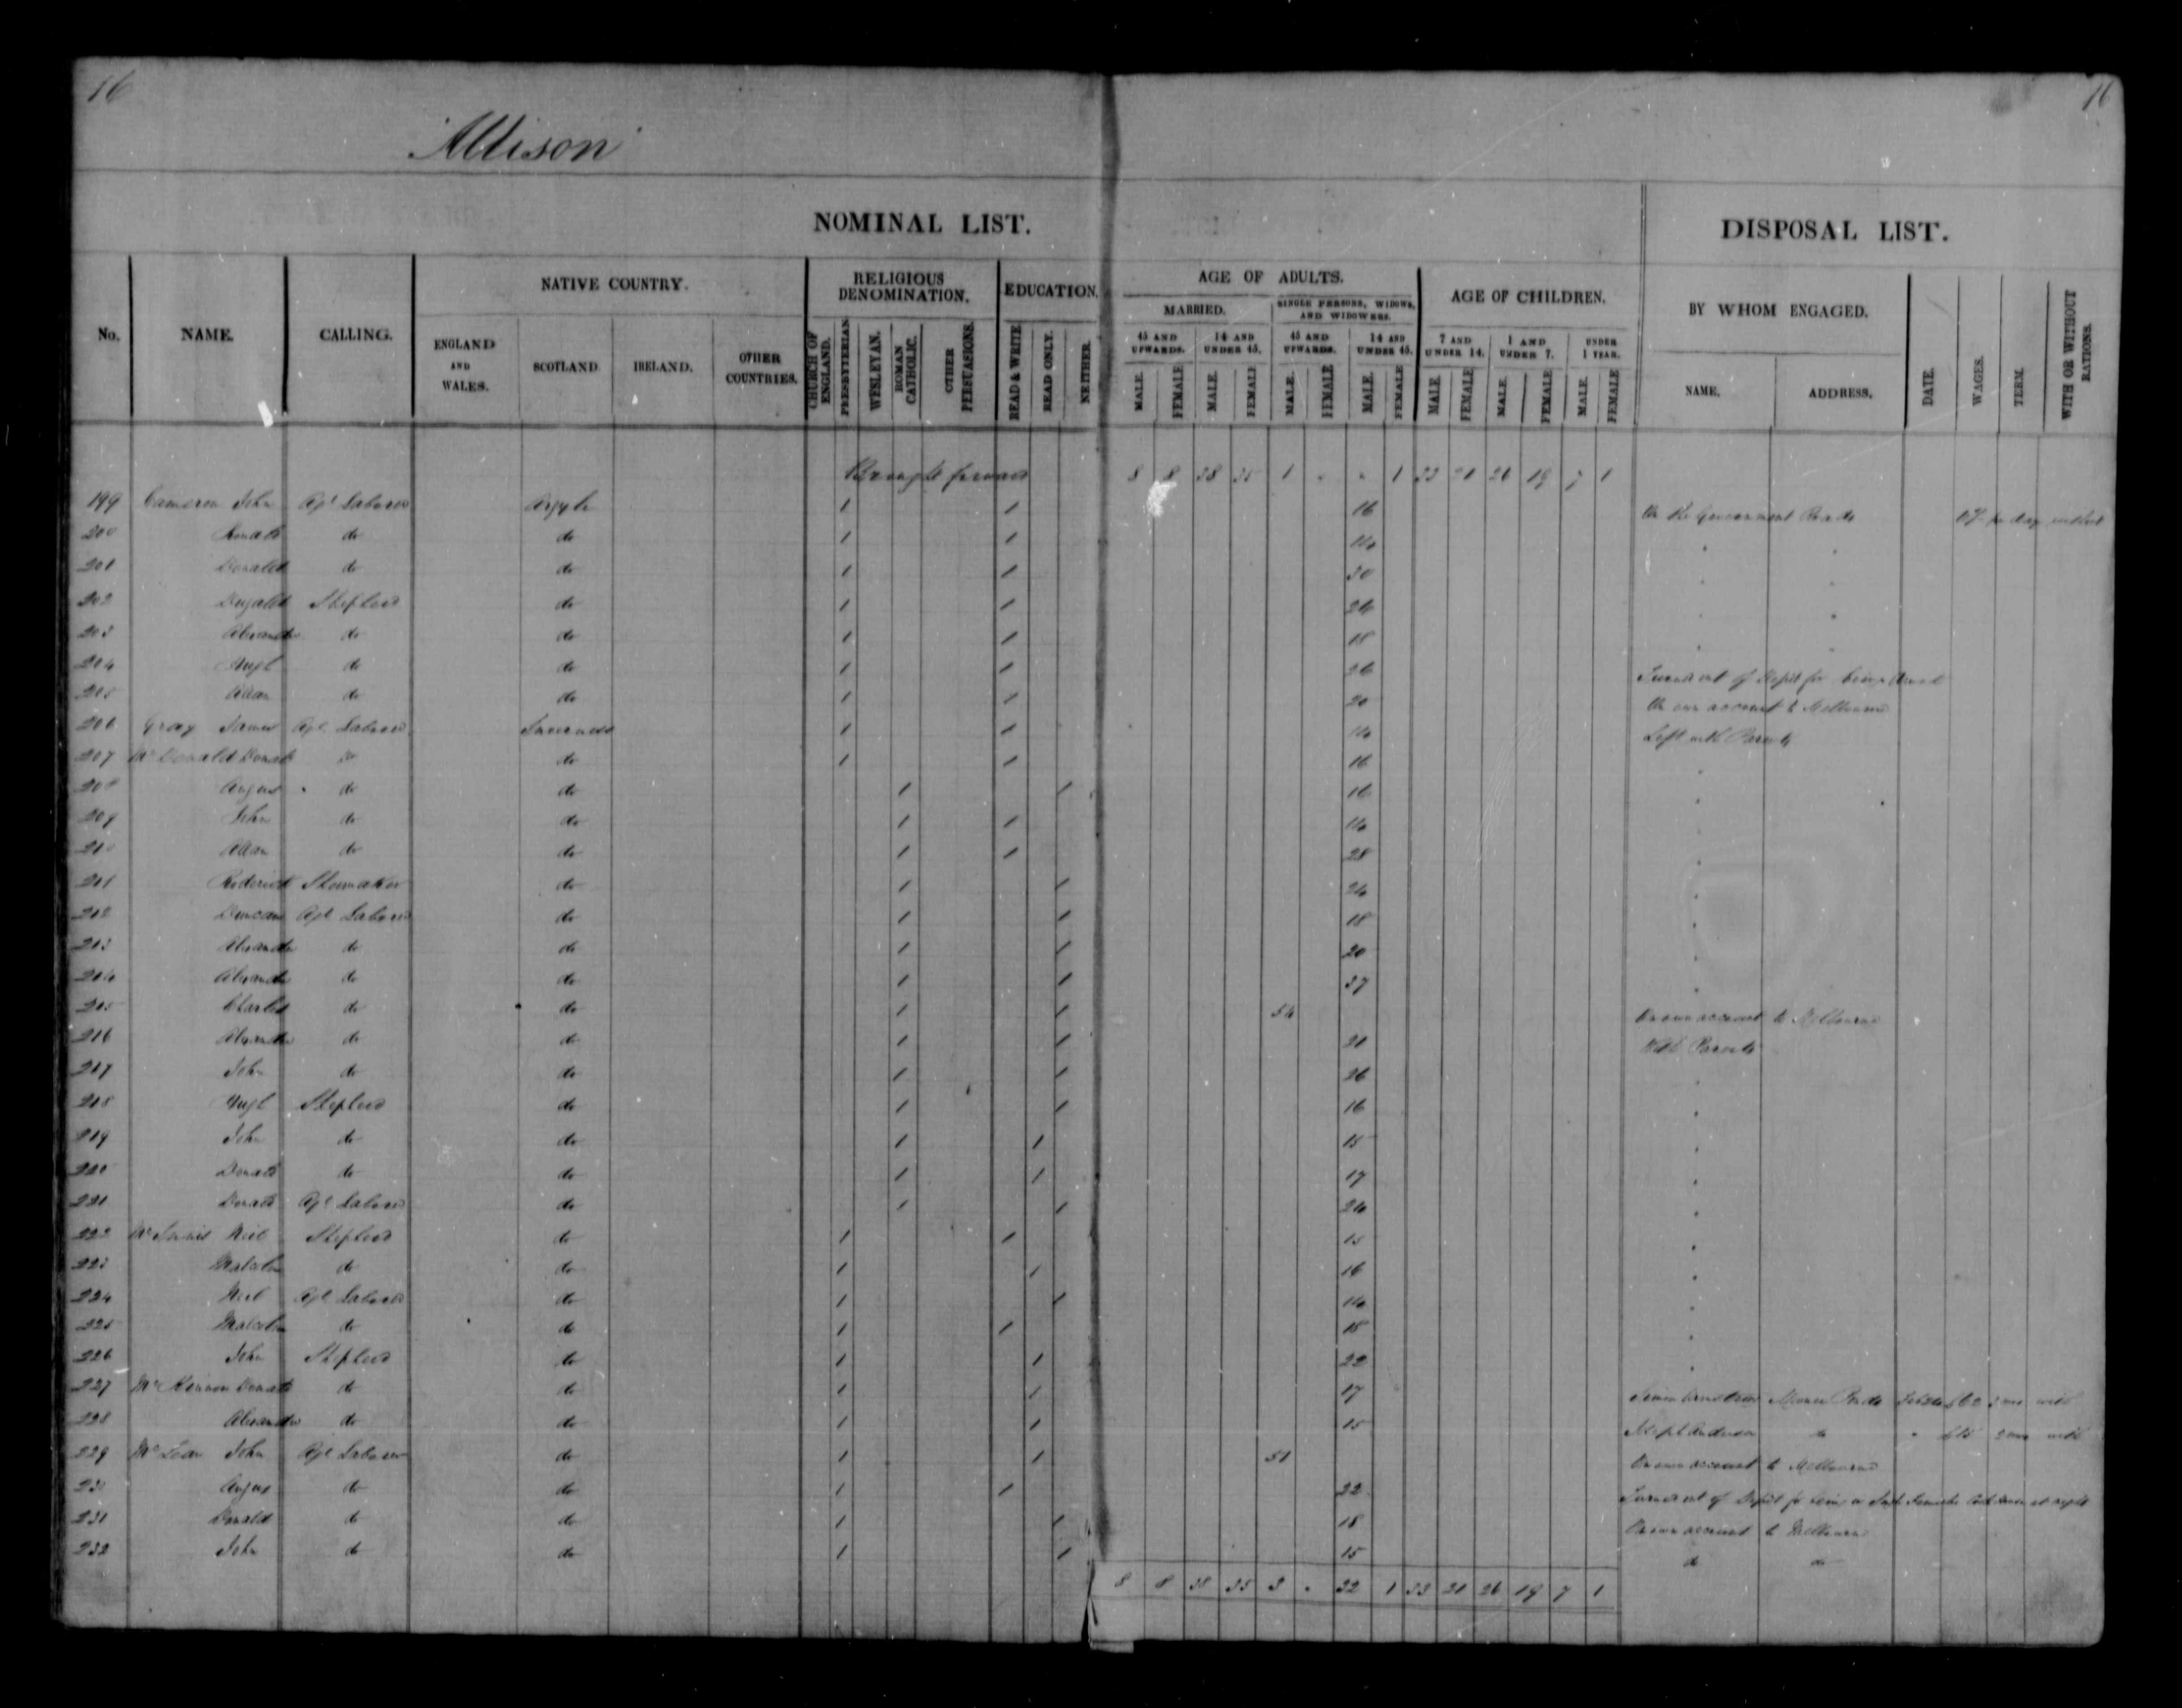 16 16
Allison
NOMINAL LIST. DISPOSAL LIST.
No. NAME. CALLING. NATIVE COUNTRY. RELIGIOUS DENOMINATION. EDUCATION. AGE OF ADULTS. AGE OF CHILDREN. BY WHOM ENGAGED. DATE. WAGES. TERM. WITH OR WITHOUT RATIONS.
ENGLAND AND WALES. SCOTLAND IRELAND. OTHER COUNTRIES. CHURCH OF ENGLAND. PRESBYTERIAN. WESLEYAN. ROMAN CATHOLIC. OTHER PERSUASIONS. READ & WRITE READ ONLY. NEITHER. MARRIED. SINGLE PERSONS, WIDOWS, AND WIDOWERS.
45 AND UPWARDS. 14 AND UNDER 45. 45 AND UPWARDS. 14 AND UNDER 45. 7 AND UNDER 14. 1 AND UNDER 7. UNDER 1 YEAR.
MALE. FEMALE MALE. FEMALE MALE. FEMALE MALE. FEMALE MALE. FEMALE MALE. FEMALE MALE. FEMALE NAME. ADDRESS.
Brought forward 8 8 38 35 1 " " 1 33 21 26 19 7 1
199 Cameron John Agl Laborer Argyle 1 1 16 On the Government Roads per day without
200 Donald do do 1 1 14 " "
201 Donald do do 1 1 30 " "
202 Dugald Shepherd do 1 1 24 " "
203 Alexander do do 1 1 18 " "
204 Hugh do do 1 1 26 Turned out of Depôt for being drunk
205 Allan do do 1 1 20 On own account to Melbourne
206 Gray James Agl Laborer Inverness 1 1 14 Left with Parents
207 McDonald Donald do do 1 1 16 "
208 Angus do do 1 1 16 "
209 John do do 1 1 14 "
210 Allan do do 1 1 28 "
211 Roderick Shoemaker do 1 1 24 "
212 Duncan Agl Laborer do 1 1 18 "
213 Alexander do do 1 1 20 "
214 Alexander do do 1 1 37 "
215 Charles do do 1 1 54 On own account to Melbourne
216 Alexander do do 1 1 21 With Parents
217 John do do 1 1 26 "
218 Hugh Shepherd do 1 1 16 "
219 John do do 1 1 15 "
220 Donald do do 1 1 17 "
221 Donald Agl Laborer do 1 1 24 "
222 Neil Shepherd do 1 1 15 "
223 Malcolm do do 1 1 16 "
224 Neil Agl Laborer do 1 1 14 "
225 Malcolm do do 1 1 18 "
226 John Shepherd do 1 1 22 "
227 McKinnon Donald do do 1 1 17 Ponds with
228 Alexander do do 1 1 15 Anderson do " £15 with
229 McLean John Agl Laborer do 1 1 51 On own account to Melbourne
230 Angus do do 1 1 22 Turned out of Depôt for being in at night
231 Donald do do 1 1 18 On own account to Melbourne
232 John do do 1 1 15 do do
8 8 38 35 3 " 32 1 33 21 26 19 7 1